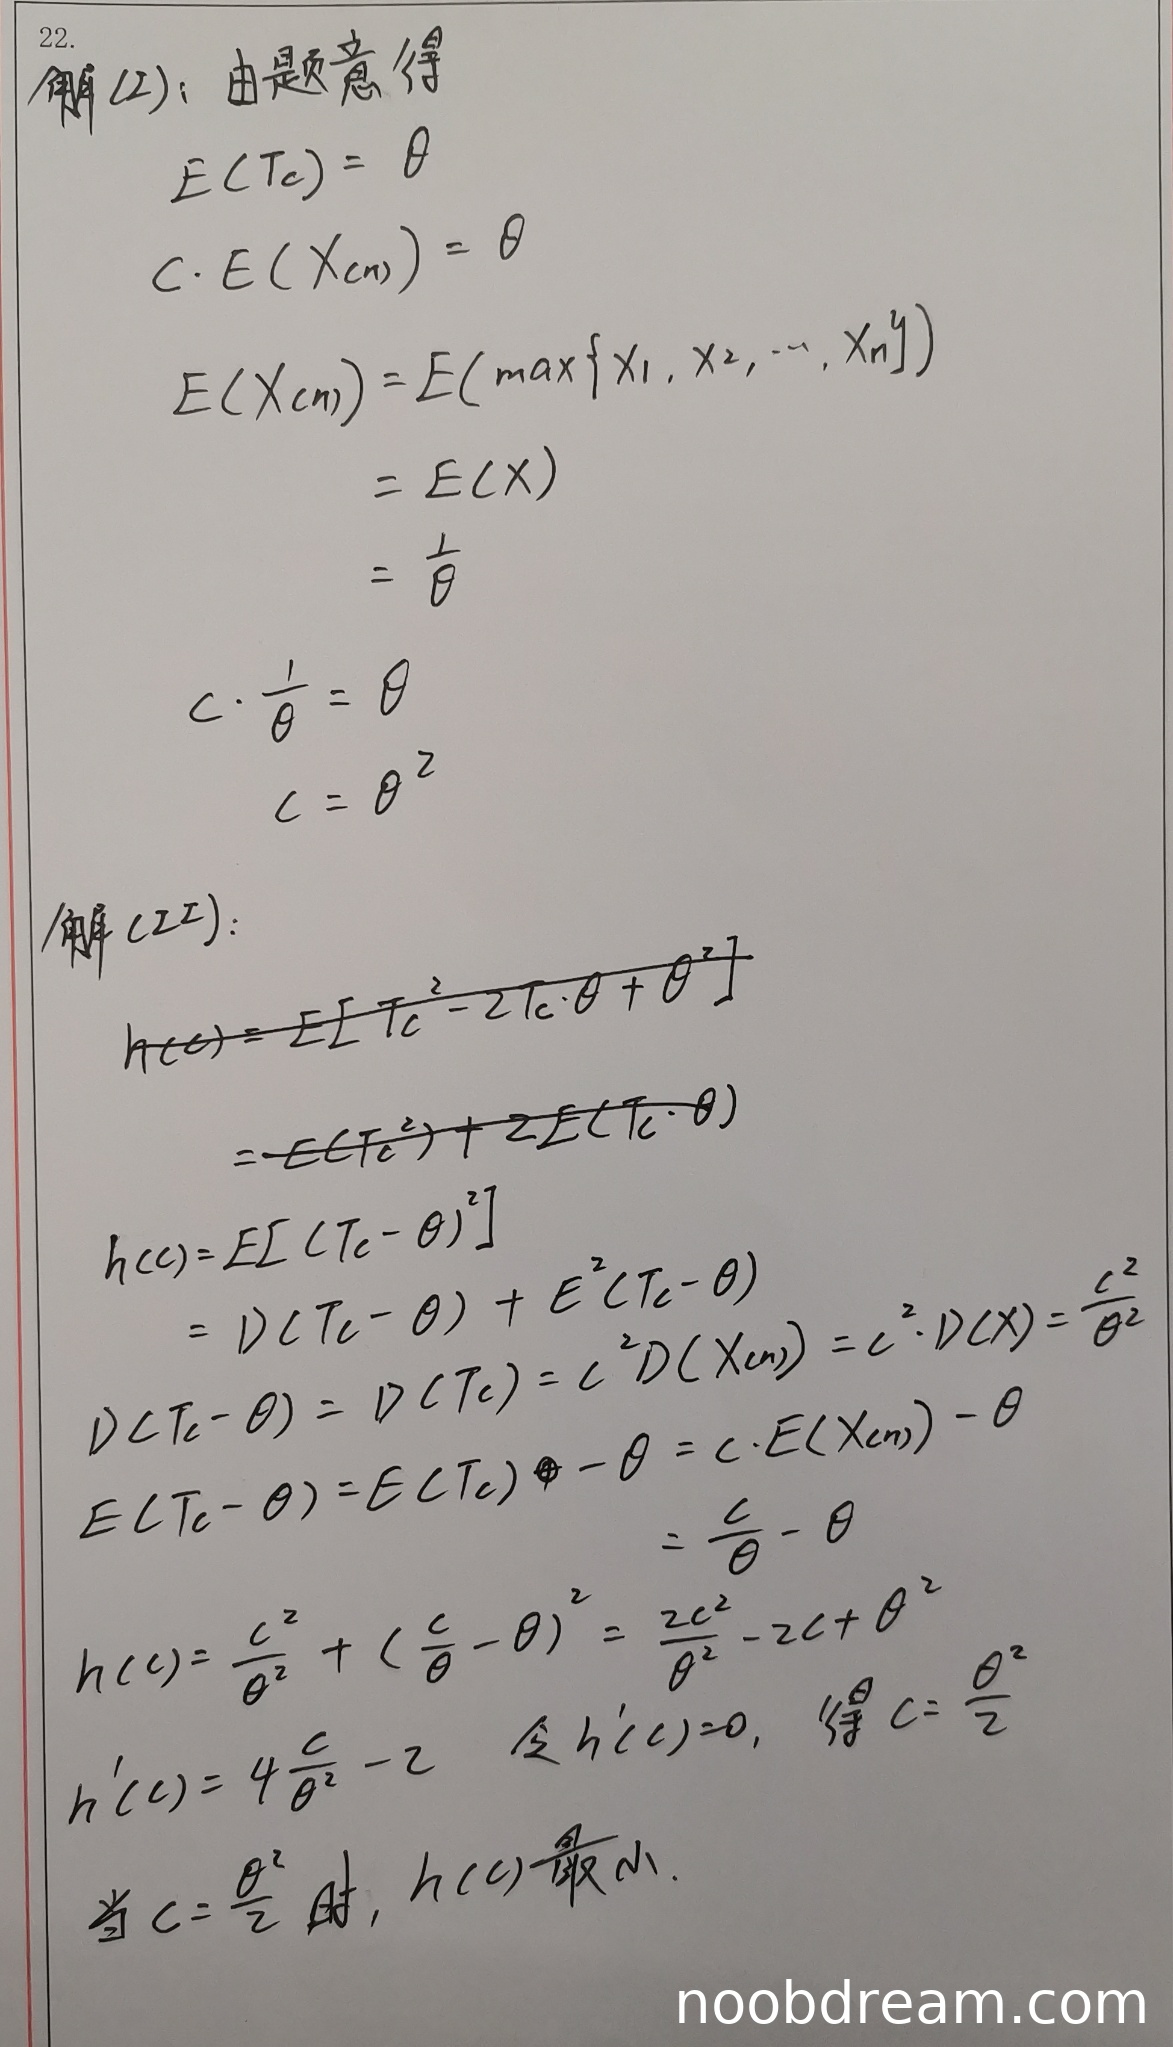 22.
解(I): 由题意得
E(Tc) = θ
C·E(X(n)) = θ
E(X(n)) = E(max{X1, X2, ···, Xn})
= E(X)
= 1/θ
c·1/θ = θ
c = θ²
解(II):
h(c) = E[Tc² - 2Tc·θ + θ²]
= E(Tc²) + 2E(Tc·θ)
h(c) = E[(Tc - θ)²]
= D(Tc - θ) + E²(Tc - θ)
D(Tc - θ) = D(Tc) = c²D(X(n)) = c²·D(X) = c²/θ²
E(Tc - θ) = E(Tc) - θ = c·E(X(n)) - θ
= c/θ - θ
h(c) = c²/θ² + (c/θ - θ)² = 2c²/θ² - 2c + θ²
h'(c) = 4c/θ² - 2 令h'(c)=0, 得 c = θ²/2
当 c = θ²/2 时, h(c)最小.
noobdream.com